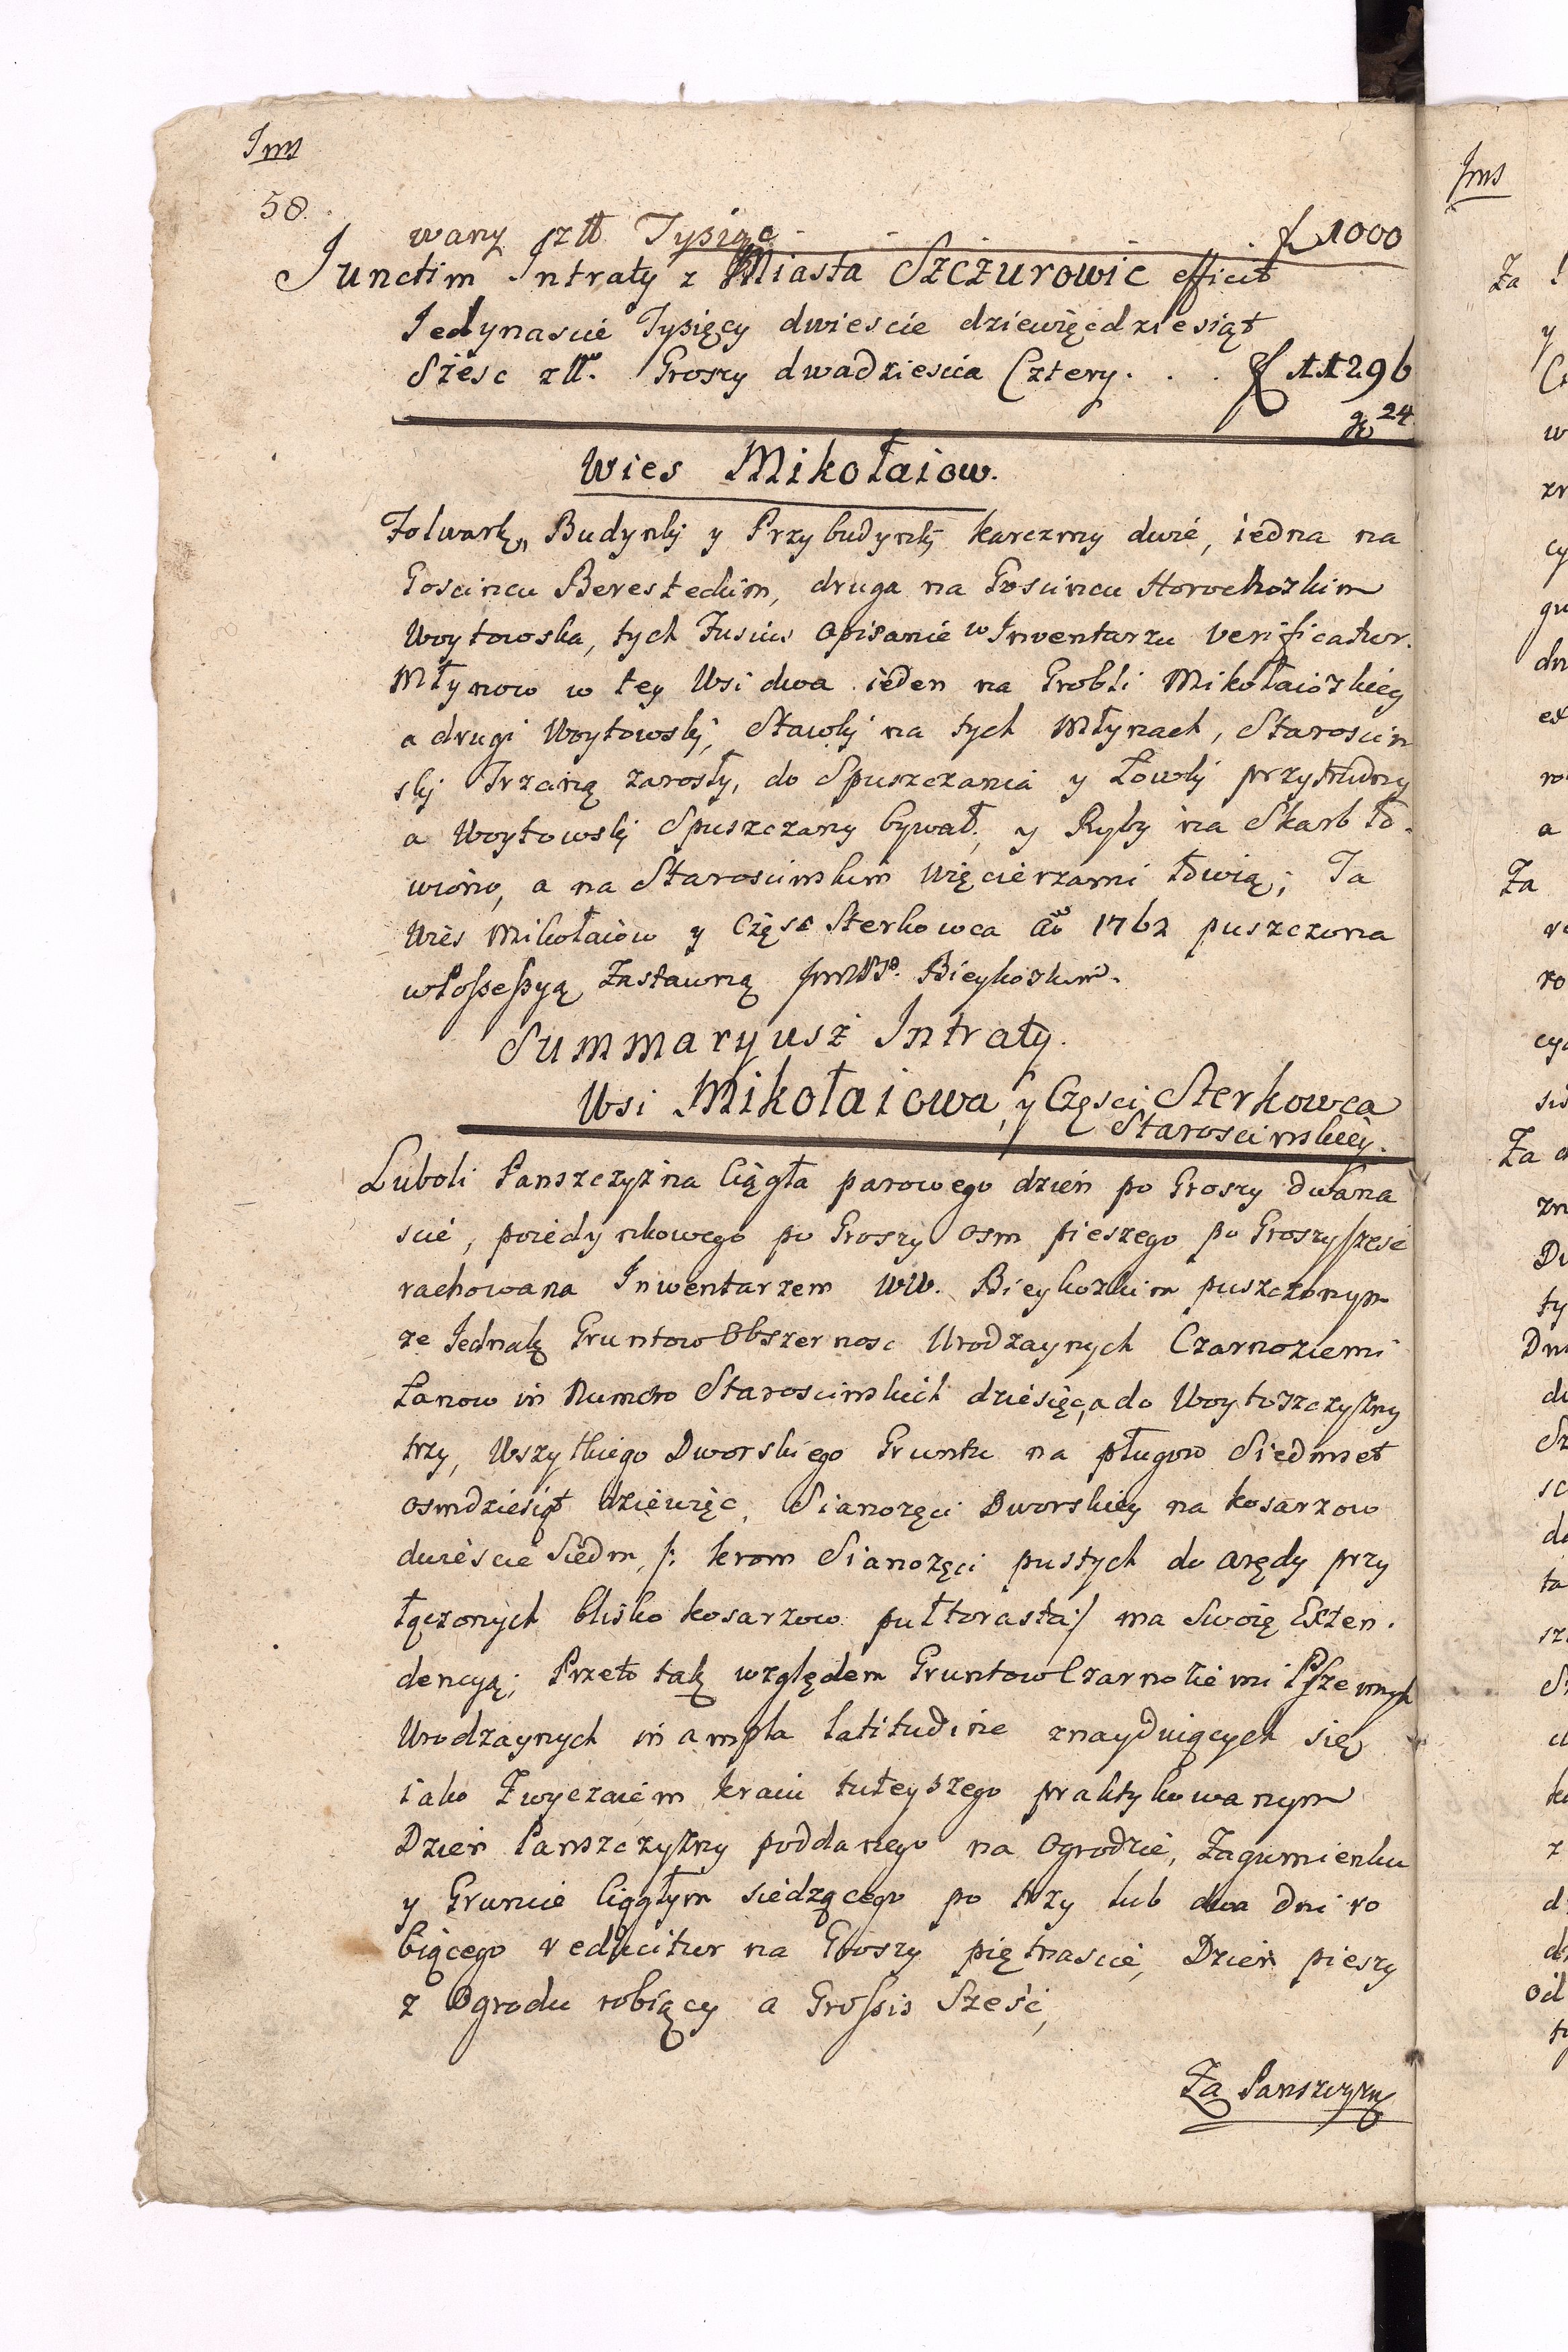 Jms
58.
wany złł Tysiąc - - f 1000
Junctim Intraty z Miasta Szczurowic efficit
Jedynascie Tysięcy dwiescie dziewięcdziesiąt
Szesc złł. Groszy dwadziescia Cztery . . . f 11296
gr 24
Wies Mikołaiow.
Folwark, Budynki y Przybudynki karczmy dwie, iedna na
Goscincu Beresteckim, druga na Goscincu Horochoskim
Woytowska, tych Fusius opisanie w Inwentarzu verificatur.
Młynow w tey Wsi dwa ieden na Grobli Mikołaioskiey
a drugi Woytowski, Stawki na tych Młynach, Staroscin
ski Trzciną zarosły, do Spuszczania y Łowki przytrudny
a Woytowski Spuszczany bywał, y Ryby na Skarb ło-
wiono, a na Staroscinskim Więcierzami łowią; Ta
Wies Mikołaiow y Częsc Sterkowca ao 1762 puszczona
w Possessyą Zastawną Bieykoskim.
Summaryusz Intraty.
Wsi Mikołaiowa, y Częsci Sterkowca
Staroscinskiey.
Luboli Panszczyzna Ciągła parowego dzień po Groszy dwana
scie, poiedynkowego po Groszy osm pieszego po Groszy szesc
rachowana Inwentarzem WW. Bieykoskim puszczonym
ze Jednak Gruntow Obszernosc Urodzaynych Czarnoziemi
Łanow in Numero Staroscinskich dziesięc, a do Woytoszczyzny
trzy, Wszytkiego Dworskiego Gruntu na pługow Siedmset
osmdziesiąt dziewięc, Sianozęci Dworskiey na kosarzow
dwiescie Siedm, /: krom Sianozęci pustych do arędy przy
łączonych blisko kosarzow pułtorasta:/ ma Swoię Exten-
dencyą; Przeto tak względem Gruntow Czarnoziemi Pszennych
Urodzaynych in ampla latitudine znayduiących się
iako Zwyczaiem kraiu tuteyszego praktykowanym
Dzień Panszczyzny poddanego na Ogrodzie, Zagumienku
y Gruncie Ciągłym siedzącego po trzy lub dwa dni ro
biącego reducitur na Groszy piętnascie, Dzień pieszy
z Ogrodu robiący a Grossis Szesć,
Za Panszczyznę
Jms
Za
y
w
a
Za
Za